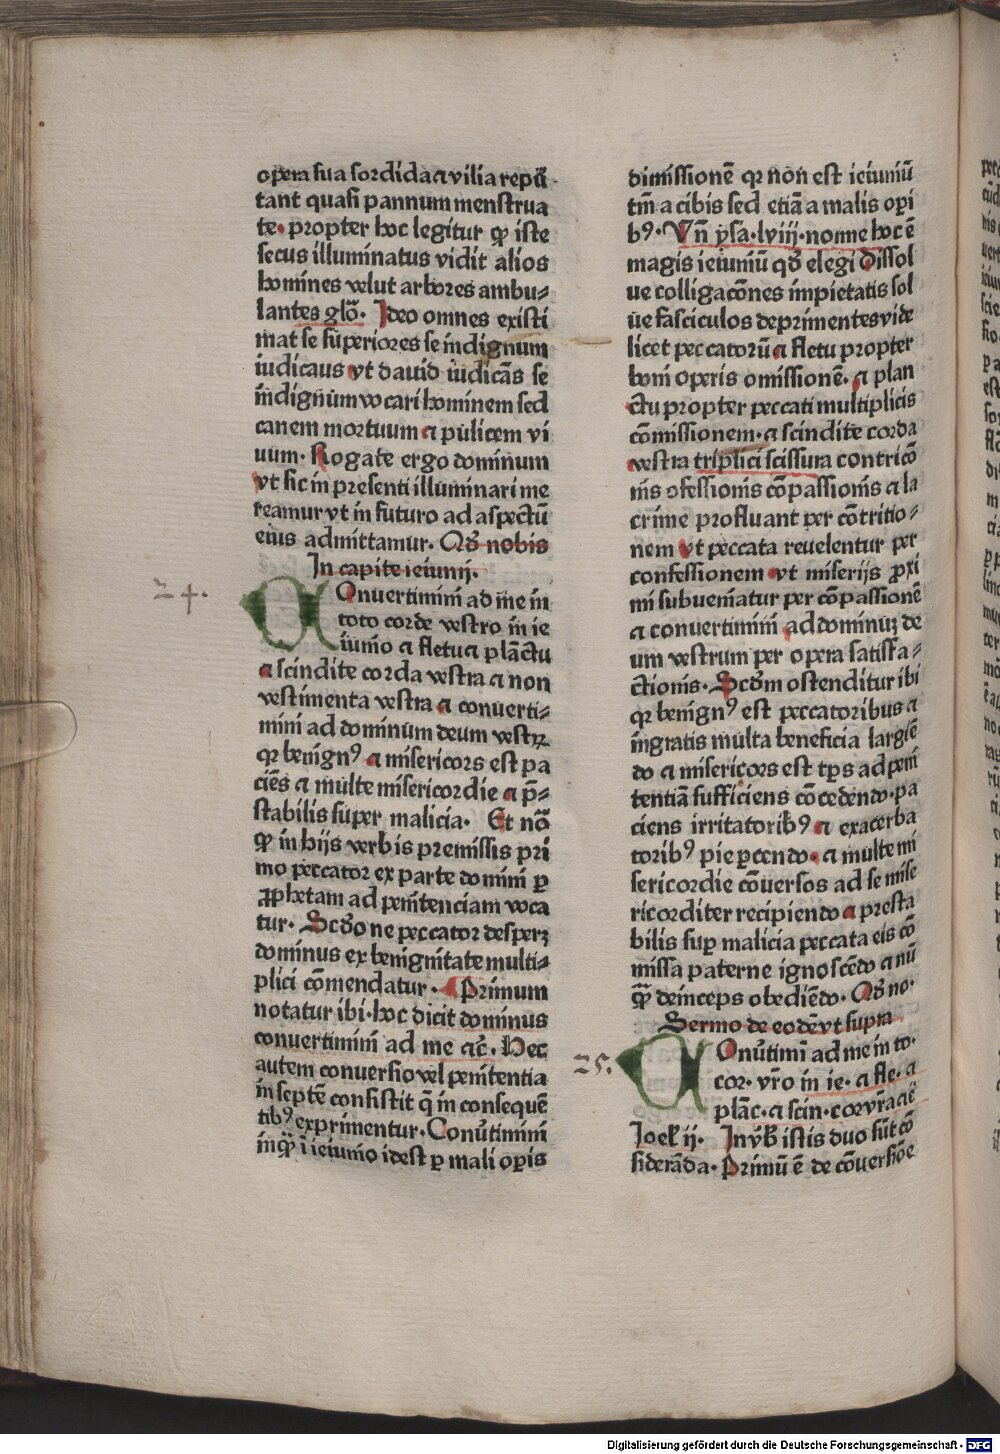 opera sua sordida ⁊ vilia repū
tant quasi pannum menstrua
te. propter hoc legitur ꝙ iste
secus illuminatus vidit alios
homines velut arbores ambu⸗
lantes glo᷒. Ideo omnes existi
mat se superiores se indignum
iudicaus vt dauid iudicās se
indignum vocari hominem sed
canem mortuum ⁊ pulicem vi
uum. Rogate ergo dominum
vt sic in presenti illuminari me
reamur vt in futuro ad aspectū
eius admittamur. Qd̄ nobis
In capite ieiunij.
24.
COnuertimini ad me in
toto corde vestro in ie
iunio ⁊ fletu ⁊ plāctu
⁊ scindite corda vestra ⁊ non
vestimenta vestra ⁊ conuerti⸗
mini ad dominum deum vestrꝝ
qr benignꝰ ⁊ misericors est pa
ciēs ⁊ multe misericordie ⁊ p̄⸗
stabilis super malicia. Et nō
ꝙ in hijs verbis premissis pri
mo peccator ex parte domini ꝑ
ꝓphetam ad penitenciam voca
tur. Scd̄o ne peccator desperꝫ
dominus ex benignitate multi⸗
plici cōmendatur. Primum
notatur ibi. hoc dicit dominus
conuertimini ad me ⁊c̄. Hec
autem conuersio vel penitentia
in septē consistit q̄ in consequē
tibꝰ exprimentur. Conūtimini
inqͣꝫ ī ieiunio idest ꝑ mali oꝑis
dimissionē qr non est ieiuniū
tm̄ a cibis sed etiā a malis oꝑi
bꝰ. Vn̄ ysa. lviij. nonne hoc ē
magis ieiuniū qd̄ elegi dissol
ue colligacōnes impietatis sol
ue fasciculos deprimentes vide
licet peccatorū ⁊ fletu propter
boni operis omissionē. ⁊ plan
ctu propter peccati multiplicis
cōmissionem. ⁊ scindite corda
vestra triplici scissura contricō
nis ꝯfessionis cōpassionis ⁊ la
crime profluant per cōtritio⸗
nem vt peccata reuelentur per
confessionem vt miserijs proxi
mi subueniatur per cōpassionē
⁊ conuertimini ad dominuꝫ de
um vestrum per opera satisfa⸗
ctionis. Scd̄m ostenditur ibi
qr benignꝰ est peccatoribus ⁊
ingratis multa beneficia largiē
do ⁊ misericors est tp̄s ad peni
tentiā sufficiens cōcedendo. pa
ciens irritatoribꝰ ⁊ exacerba
toribꝰ pie ꝑcendo. ⁊ multe mi
sericordie cōuersos ad se mise
ricorditer recipiendo ⁊ presta
bilis suꝑ malicia peccata eis cō
missa paterne ignoscēdo ⁊ nū
qͣꝫ deinceps obediēdo. Qd̄ no.
Sermo de eodē vt supra
25.
COnūtimi ad me in to.
cor. vr̄o in ie. ⁊ fle. ⁊
plāc. ⁊ scin. cor vr̄a ⁊c̄
Joel̄ ij. In vb̄ istis duo sūt cō
siderāda. Primū ē de cōuersiōe
Digitalisierung gefördert durch die Deutsche Forschungsgemeinschaft - DFG